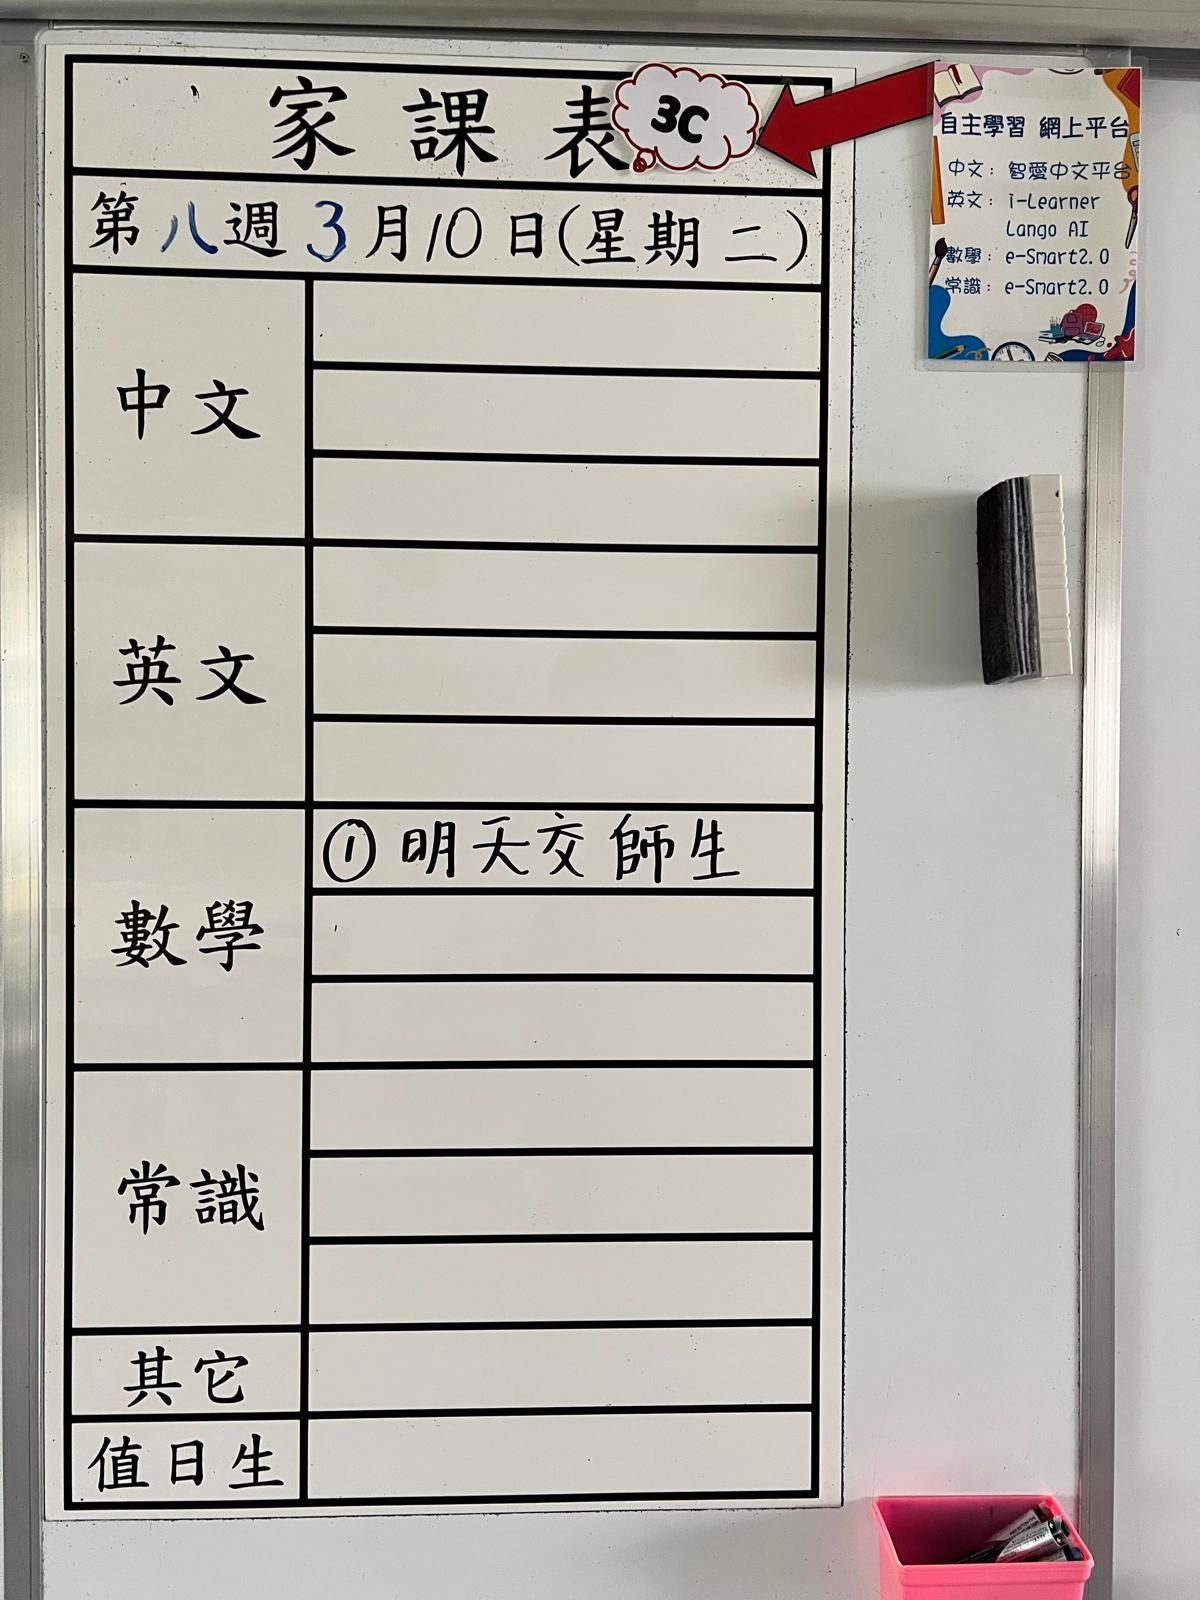 家課表
3C
第八週3月10日(星期二)
中文
英文
數學
①明天交師生
常識
其它
值日生
自主學習 網上平台
中文：智愛中文平台
英文：i-Learner
Lango AI
數學：e-Smart2.0
常識：e-Smart2.0